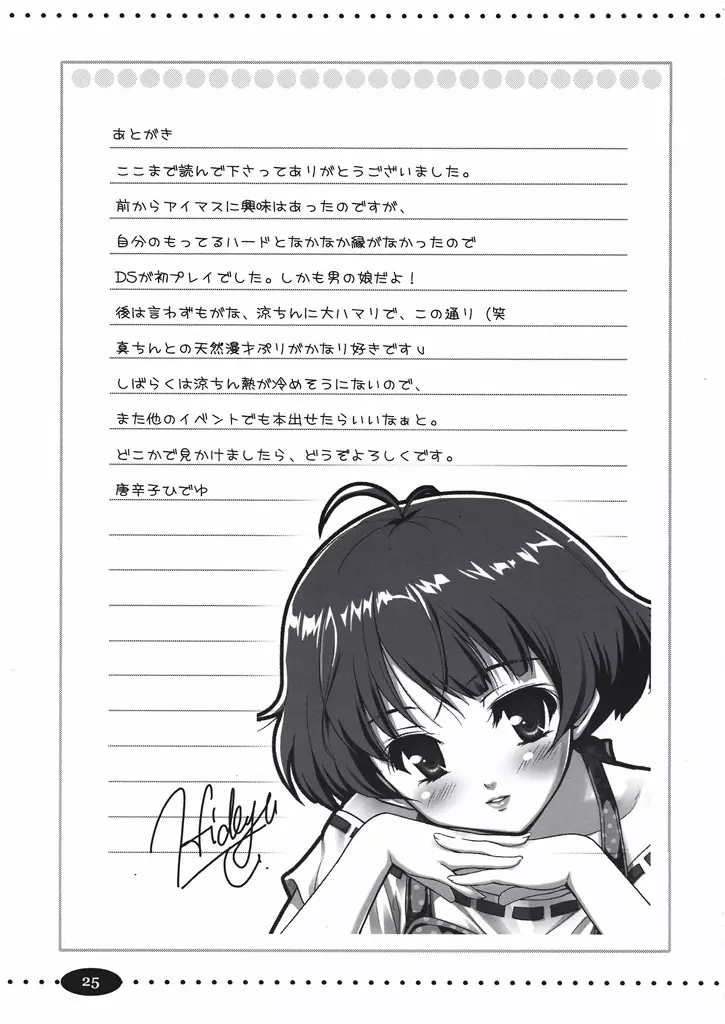 あとがき
ここまで読んで下さってありがとうございました。
前からアイマスに興味はあったのですが、
自分のもってるハードとなかなか縁がなかったので
DSが初プレイでした。しかも男の娘だよ！
後は言わずもがな、涼ちんに大ハマリで、この通り（笑
真ちんとの天然漫才ぷりがかなり好きです
しばらくは涼ちん熱が冷めそうにないので、
また他のイベントでも本出せたらいいなぁと。
どこかで見かけましたら、どうぞよろしくです。
唐辛子ひでゆ
Hideyu
25